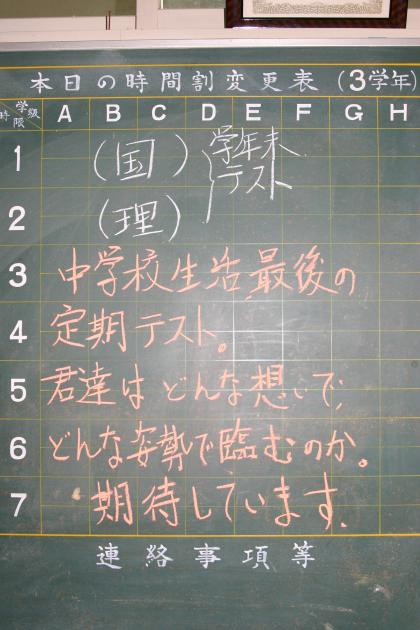 本日の時間割変更表(3学年)
学級 時限 A B C D E F G H
1 (国) 学年末
テスト
2 (理)
3 中学校生活最後の
4 定期テスト。
5 君達はどんな想いで、
6 どんな姿勢で臨むのか。
7 期待しています。
連絡事項等